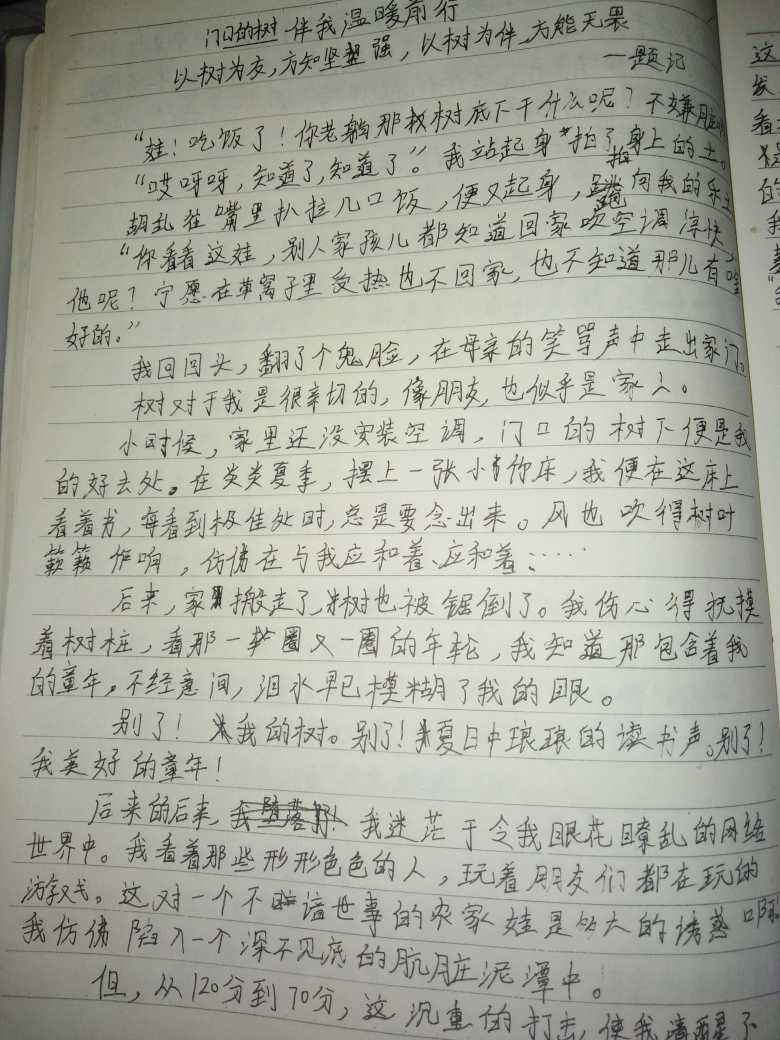 门口的树 伴我温暖前行
以树为友,方知坚强,以树为伴,方能无畏
—题记
"娃!吃饭了!你老躺那救树底下干什么呢?不嫌脏
"哎呀呀,知道了,知道了。"我站起身拍了身上的土。
胡乱往嘴里扒拉几口饭,便又起身,向我的乐土
"你看看这娃,别人家孩儿都知道回家吹空调凉快,
他呢?宁愿在草窝子里受热也不回家,也不知道那儿有啥
好的。"
我回回头,翻了个鬼脸,在母亲的笑骂声中走出家门。
树对于我是很亲切的,像朋友,也似乎是家人。
小时候,家里还没安装空调,门口的树下便是我
的好去处。在炎炎夏季,摆上一张小竹床,我便在这床上
看着书,每看到极佳处时,总是要念出来。风也吹得树叶
簌簌作响,仿佛在与我应和着、应和着……
后来,家搬走了,树也被锯倒了。我伤心得抚摸
着树桩,看那一圈又一圈的年轮,我知道那包含着我
的童年。不经意间,泪水早已模糊了我的眼。
别了!我的树。别了!夏日中琅琅的读书声。别了!
我美好的童年!
后来的后来,我迷茫于令我眼花瞭乱的网络
世界中。我看着那些形形色色的人,玩着朋友们都在玩的
游戏。这对一个不谙世事的农家娃是多大的诱惑啊。
我仿佛陷入一个深不见底的肮脏泥潭中。
但,从120分到70分,这沉重的打击,使我清醒了
这
发
看
的
我